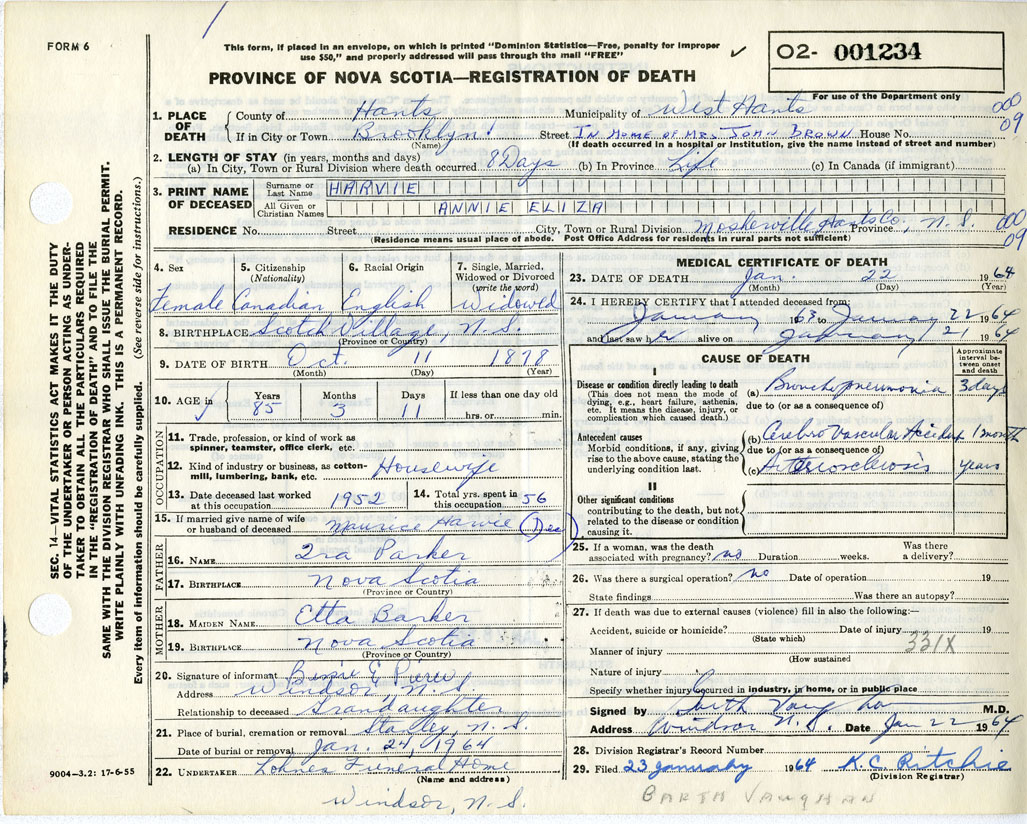 FORM 6
This form, if placed in an envelope, on which is printed "Dominion Statistics—Free, penalty for improper
use $50," and properly addressed will pass through the mail "FREE" ✓
O2- 001234
PROVINCE OF NOVA SCOTIA—REGISTRATION OF DEATH
For use of the Department only
000
09
1. PLACE OF DEATH
County of Hants Municipality of West Hants
If in City or Town Brooklyn Street IN HOME OF MRS. JOHN BROWN House No.
(Name) (If death occurred in a hospital or institution, give the name instead of street and number)
2. LENGTH OF STAY (in years, months and days)
(a) In City, Town or Rural Division where death occurred 8 Days (b) In Province Life (c) In Canada (if immigrant)
3. PRINT NAME OF DECEASED
Surname or Last Name HARVIE
All Given or Christian Names ANNIE ELIZA
RESIDENCE No. Street City, Town or Rural Division Mosherville, Hants Co, Province N. S.
000
09
(Residence means usual place of abode. Post Office Address for residents in rural parts not sufficient)
4. Sex 5. Citizenship (Nationality) 6. Racial Origin 7. Single, Married, Widowed or Divorced (write the word)
Female Canadian English Widowed
8. BIRTHPLACE Scotch Village, N. S.
(Province or Country)
9. DATE OF BIRTH Oct. 11 1878
(Month) (Day) (Year)
10. AGE in Years Months Days If less than one day old
85 3 11 hrs. or min.
OCCUPATION
11. Trade, profession, or kind of work as spinner, teamster, office clerk, etc.
12. Kind of industry or business, as cotton-mill, lumbering, bank, etc. Housewife
13. Date deceased last worked at this occupation 1952 14. Total yrs. spent in this occupation 56
15. If married give name of wife or husband of deceased Maurice Harvie (Dec)
FATHER
16. NAME Ira Parker
17. BIRTHPLACE Nova Scotia
(Province or Country)
MOTHER
18. MAIDEN NAME Etta Barker
19. BIRTHPLACE Nova Scotia
(Province or Country)
20. Signature of informant E
Address Windsor N. S.
Relationship to deceased Grandaughter
21. Place of burial, cremation or removal Stanley, N. S.
Date of burial or removal Jan. 24, 1964
22. UNDERTAKER Lohnes Funeral Home
(Name and address)
Windsor, N. S.
9004—3.2: 17-6-55
MEDICAL CERTIFICATE OF DEATH
23. DATE OF DEATH Jan. 22 1964
(Month) (Day) (Year)
24. I HEREBY CERTIFY that I attended deceased from:
January 1963 to January 22 1964
and last saw her alive on January 21 1964
CAUSE OF DEATH
Approximate interval between onset and death
I
Disease or condition directly leading to death
(This does not mean the mode of dying, e.g., heart failure, asthenia, etc. It means the disease, injury, or complication which caused death.)
(a) Bronchopneumonia 3 days
due to (or as a consequence of)
Antecedent causes
Morbid conditions, if any, giving rise to the above cause, stating the underlying condition last.
(b) Cerebro Vascular Accident 1 month
due to (or as a consequence of)
(c) Arteriosclerosis years
II
Other significant conditions contributing to the death, but not related to the disease or condition causing it.
25. If a woman, was the death associated with pregnancy? no Duration weeks. Was there a delivery?
26. Was there a surgical operation? no Date of operation 19
State findings Was there an autopsy?
27. If death was due to external causes (violence) fill in also the following:—
Accident, suicide or homicide? Date of injury 19
(State which) 331X
Manner of injury
(How sustained
Nature of injury
Specify whether injury occurred in industry, in home, or in public place
Signed by Garth Vaughan M.D.
Address Windsor N. S. Date Jan 22 1964
28. Division Registrar's Record Number
29. Filed 23 January 1964 K.C. Ritchie
(Division Registrar)
BARTH VAUGHAN
SEC. 14—VITAL STATISTICS ACT MAKES IT THE DUTY
OF THE UNDERTAKER OR PERSON ACTING AS UNDER-
TAKER TO OBTAIN ALL THE PARTICULARS REQUIRED
IN THE "REGISTRATION OF DEATH" AND TO FILE THE
SAME WITH THE DIVISION REGISTRAR WHO SHALL ISSUE THE BURIAL PERMIT.
WRITE PLAINLY WITH UNFADING INK. THIS IS A PERMANENT RECORD.
Every item of information should be carefully supplied. (See reverse side for instructions.)